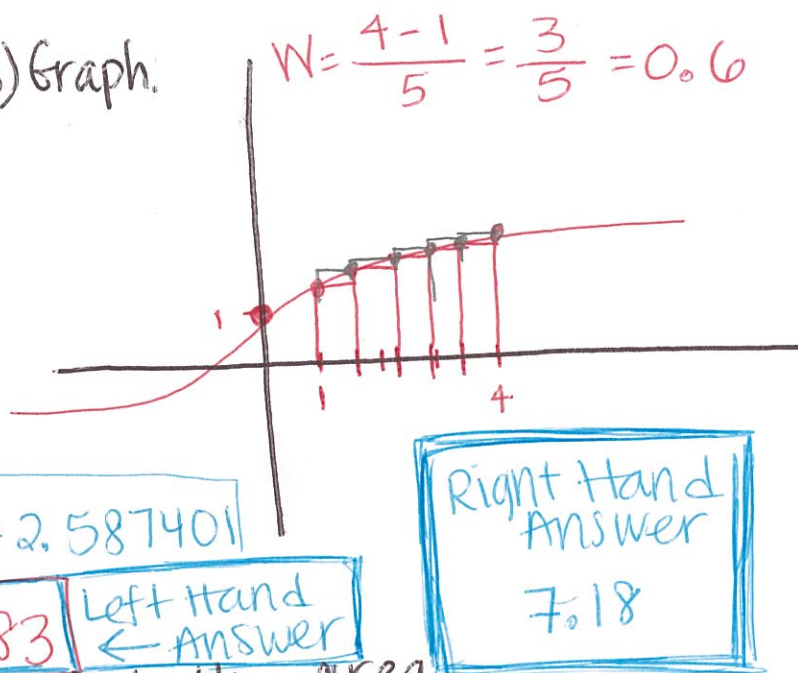 ) Graph.
W = 4-1 / 5 = 3 / 5 = 0.6
1
1
4
2.587401
83
Left Hand
← Answer
Right Hand
Answer
7.18
area